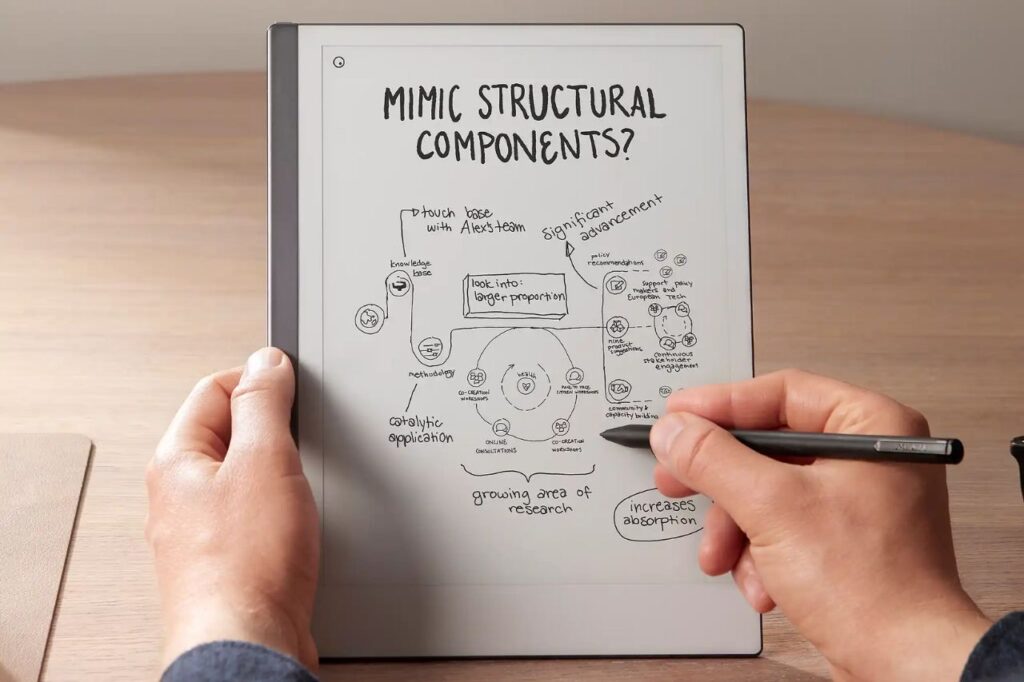 MIMIC STRUCTURAL
COMPONENTS?
touch base
with Alex's team
significant
advancement
knowledge
base
policy
recommendations
look into:
larger proportion
support policy
makers and
European Tech
nine
product
suggestions
continuous
stakeholder
engagement
methodology
health
CO-CREATION
WORKSHOPS
FACE TO FACE
CITIZEN WORKSHOPS
community &
capacity building
catalytic
application
ONLINE
CONSULTATIONS
CO-CREATION
WORKSHOPS
growing area of
research
increases
absorption